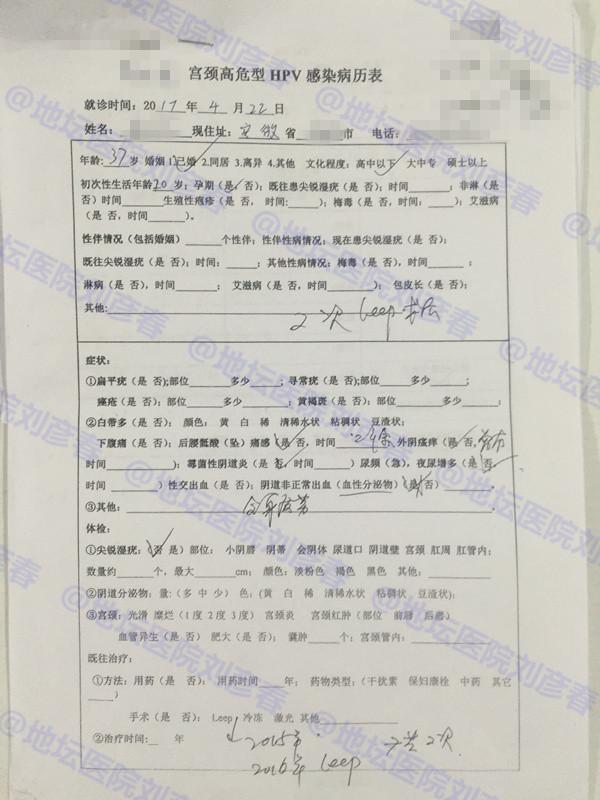 宫颈高危型 HPV 感染病历表
就诊时间：2017 年 4 月 22 日
姓名： 现住址：安徽 省 市 电话：
年龄：37岁 婚姻 1.已婚 2.同居 3.离异 4.其他 文化程度：高中以下 大中专 硕士以上
初次性生活年龄20岁；孕期（是 否）；既往患尖锐湿疣（是 否）；时间 ；非淋（是
否）时间 生殖性疱疹（是 否， 时间： ）；梅毒（是 否，时间： ）；艾滋病
（是 否，时间 ）。
性伴情况（包括婚姻） 个性伴；性伴性病情况；现在患尖锐湿疣（是 否）；
既往尖锐湿疣（是 否）；时间： ；其他性病情况；梅毒（是 否），时间 ；
淋病（是 否），时间 ； 艾滋病（是 否，时间 ）； 包皮长（是 否）；
其他： 2次 leep
症状：
①扁平疣（是 否）；部位 多少 ； 寻常疣（是 否）；部位 多少 ；
痤疮（是 否）；部位： 多少 ； 黄褐斑（是 否）；部位 多少 ；
②白带多（是 否）； 颜色： 黄 白 稀 清稀水状 粘稠状 豆渣状；
下腹痛（是 否）；后腰骶酸（坠）痛感（是 否，时间 外阴瘙痒（是 否，
时间 ）；霉菌性阴道炎（是 否，时间 ）尿频（急），夜尿增多（是 否，
时间 ）性交出血（是 否）；阴道非正常出血（血性分泌物）（是 否） 。
③其他：
体检：
①尖锐湿疣：（否 是）部位： 小阴唇 阴蒂 会阴体 尿道口 阴道壁 宫颈 肛周 肛管内；
数量约 个，最大 cm； 颜色：淡粉色 褐色 黑色 其他：
②阴道分泌物：量：（多 中 少） 色：（黄 白 稀 清稀水状 粘稠状、豆渣状）；
③宫颈：光滑 糜烂（1度 2度 3度） 宫颈炎 宫颈红肿（部位 前唇 后唇）
血管异生（是 否） 肥大（是 否）； 囊肿 个；宫颈管内：
既往治疗：
①方法：用药（是 否）： 用药时间 年； 药物类型：（干扰素 保妇康栓 中药 其它
）
手术（是 否）： Leep 冷冻 激光 其他
②治疗时间： 年 2015年 共2次
2016年 leep
@地坛医院刘彦春